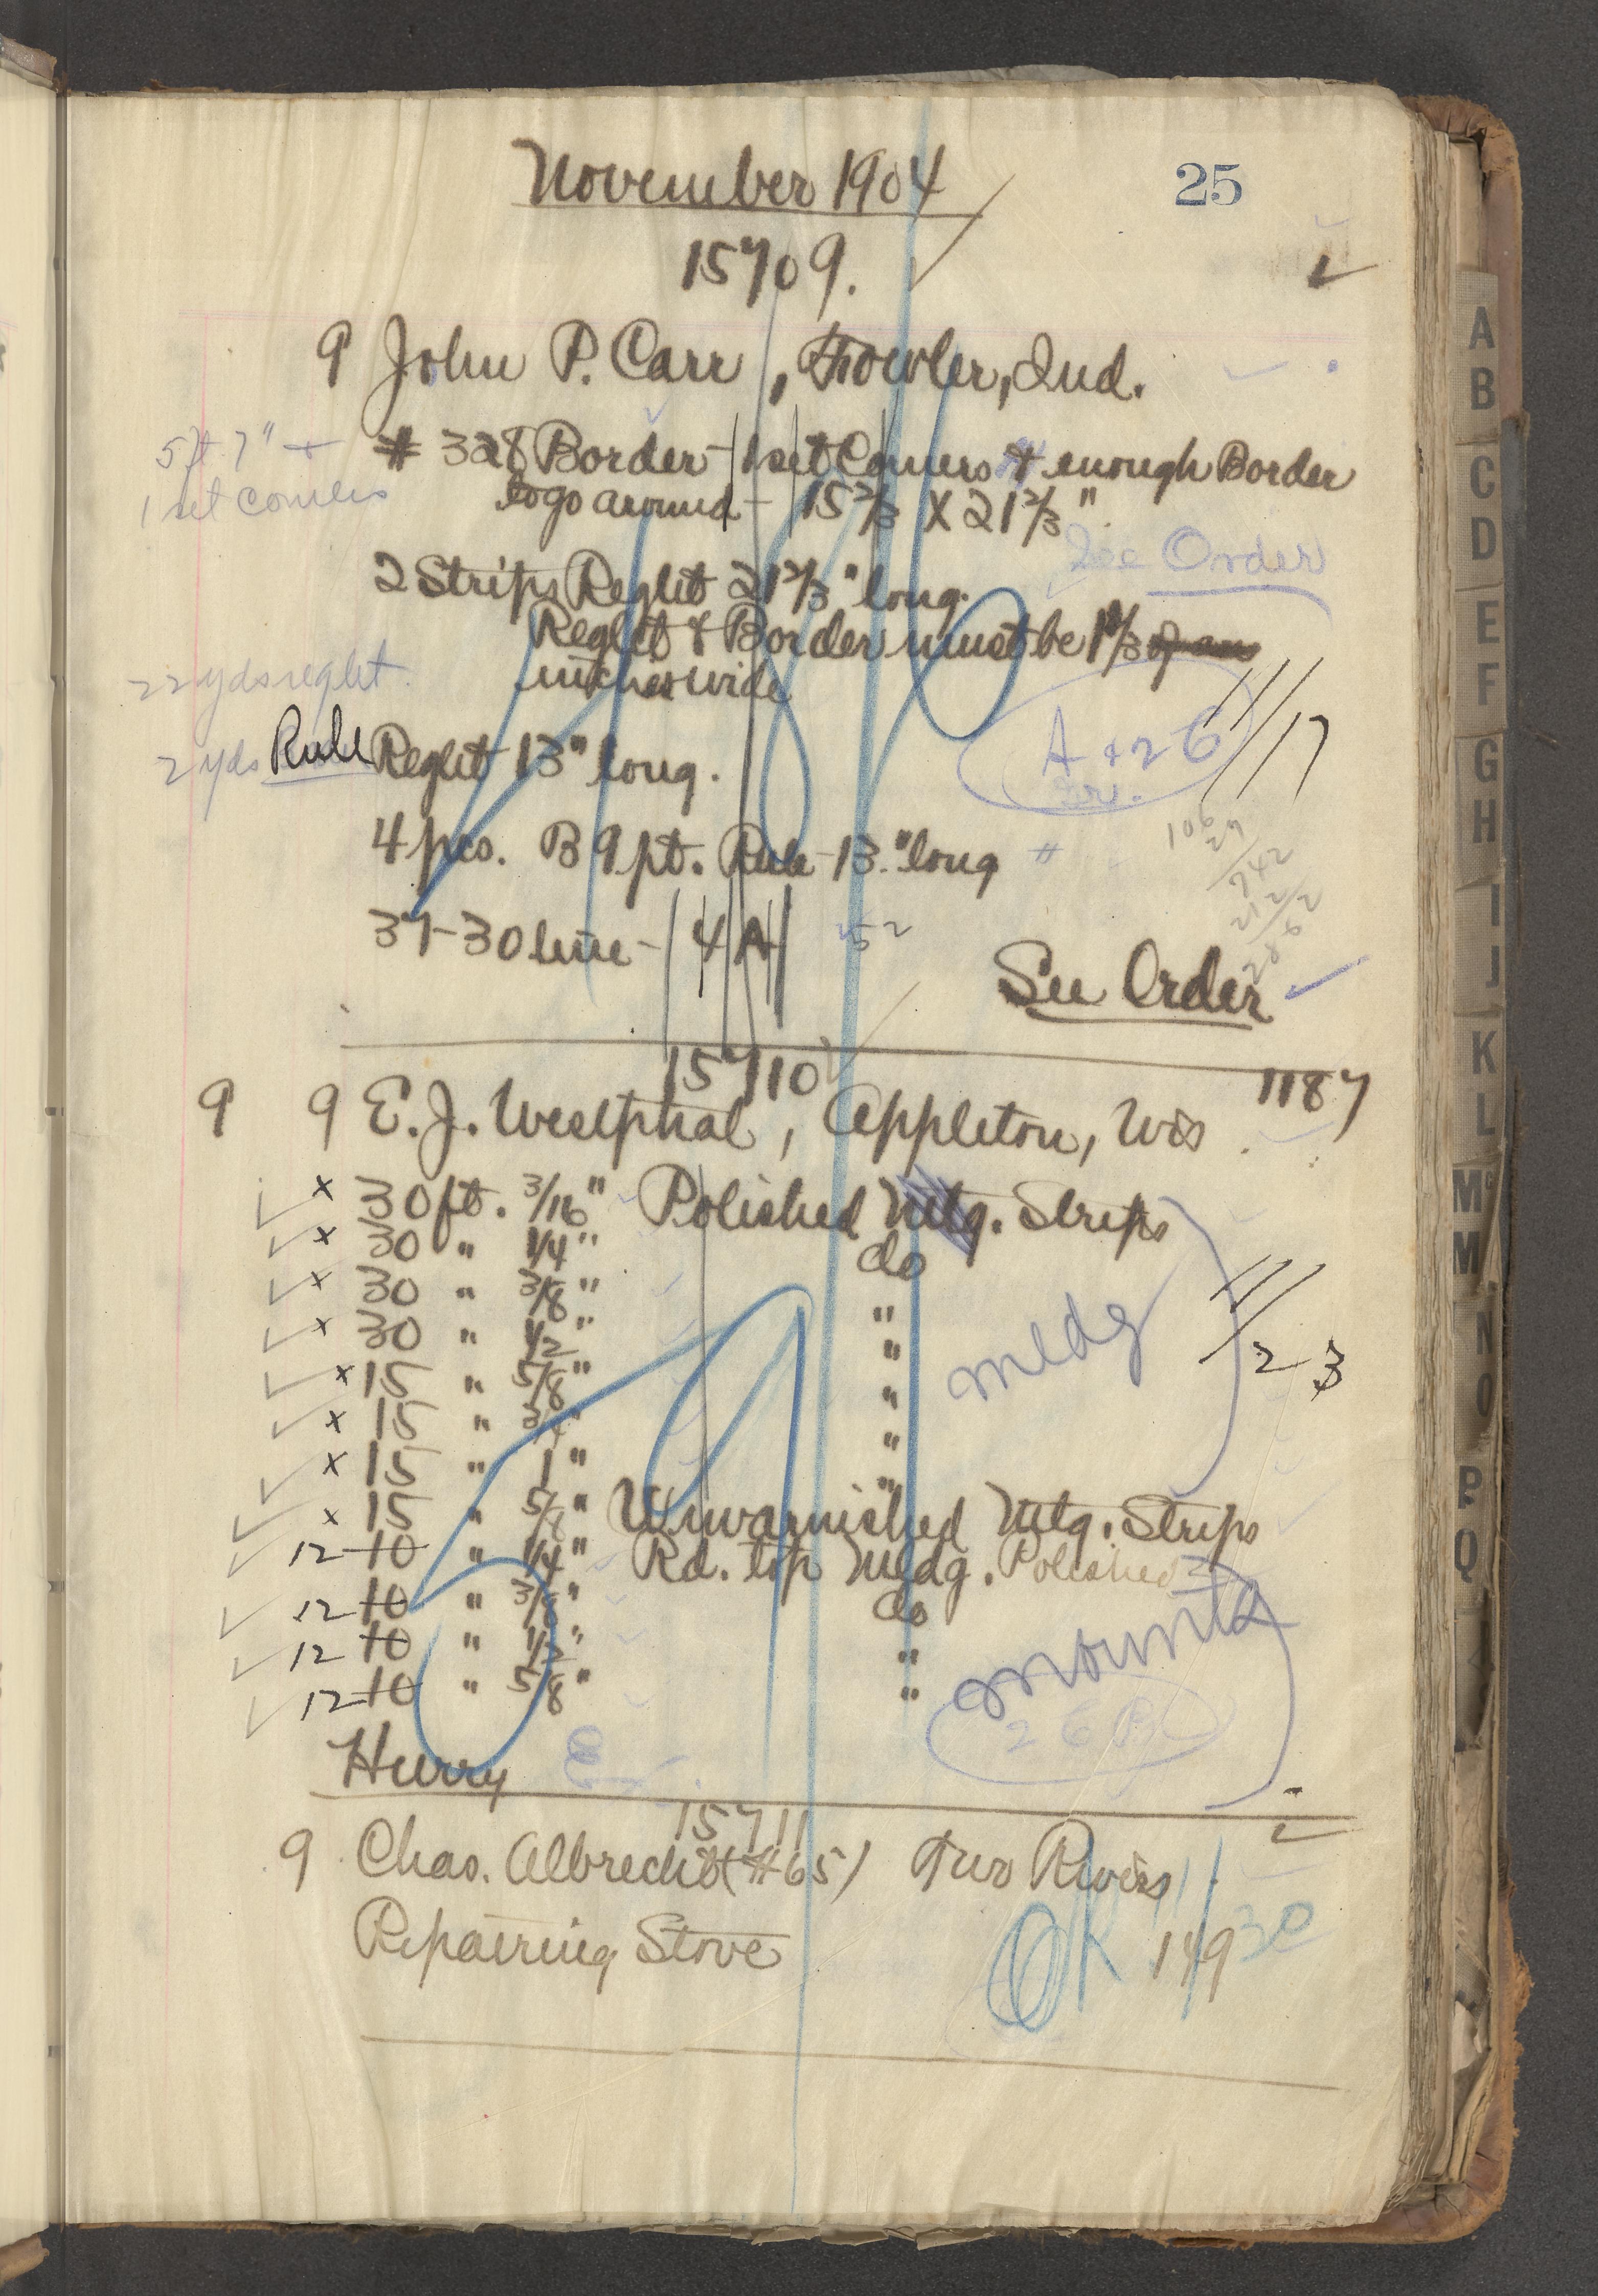 November 1904
25
15709.
9 John P. Carr, Fowler, Ind.
5 ft 7" +
# 328 Border - 1 set Corners & enough Border
1 set corners
to go around - 15 2/3 X 21 2/3"
See Order
2 Strips Reglet 21 2/3" long.
Reglet & Border must be 1 1/3
22 yds reglet.
inches wide
11/17
A & 26
2 yds Rule Reglet 13" long.
106
27
742
212
2862
4 pcs. B 9 pt. Rule - 13" long
37 - 30 line - 4A 52
See Order
15710
1187
9 9 E. J. Westphal, Appleton, Wis.
x 30 ft. 3/16" Polished Mtg. Strips
x 30 " 1/4" do
x 30 " 3/8" "
x 30 " 1/2" "
mldg
11/23
x 15 " 5/8" "
x 15 " 3/4" "
x 15 " 1" "
x 15 " 5/8" Unvarnished Mtg. Strips
12 10 " 1/4" Rd. top Mldg. Polished
12 10 " 3/8" do
12 10 " 1/2" "
12 10 " 5/8" "
mounta
26 B
Hurry
15711
9 Chas. Albrecht (#65) Two Rivers
Repairing Stove
OK 11/30
149
A
B
C
D
E
F
G
H
I
J
K
L
Mc
M
N
O
P
Q